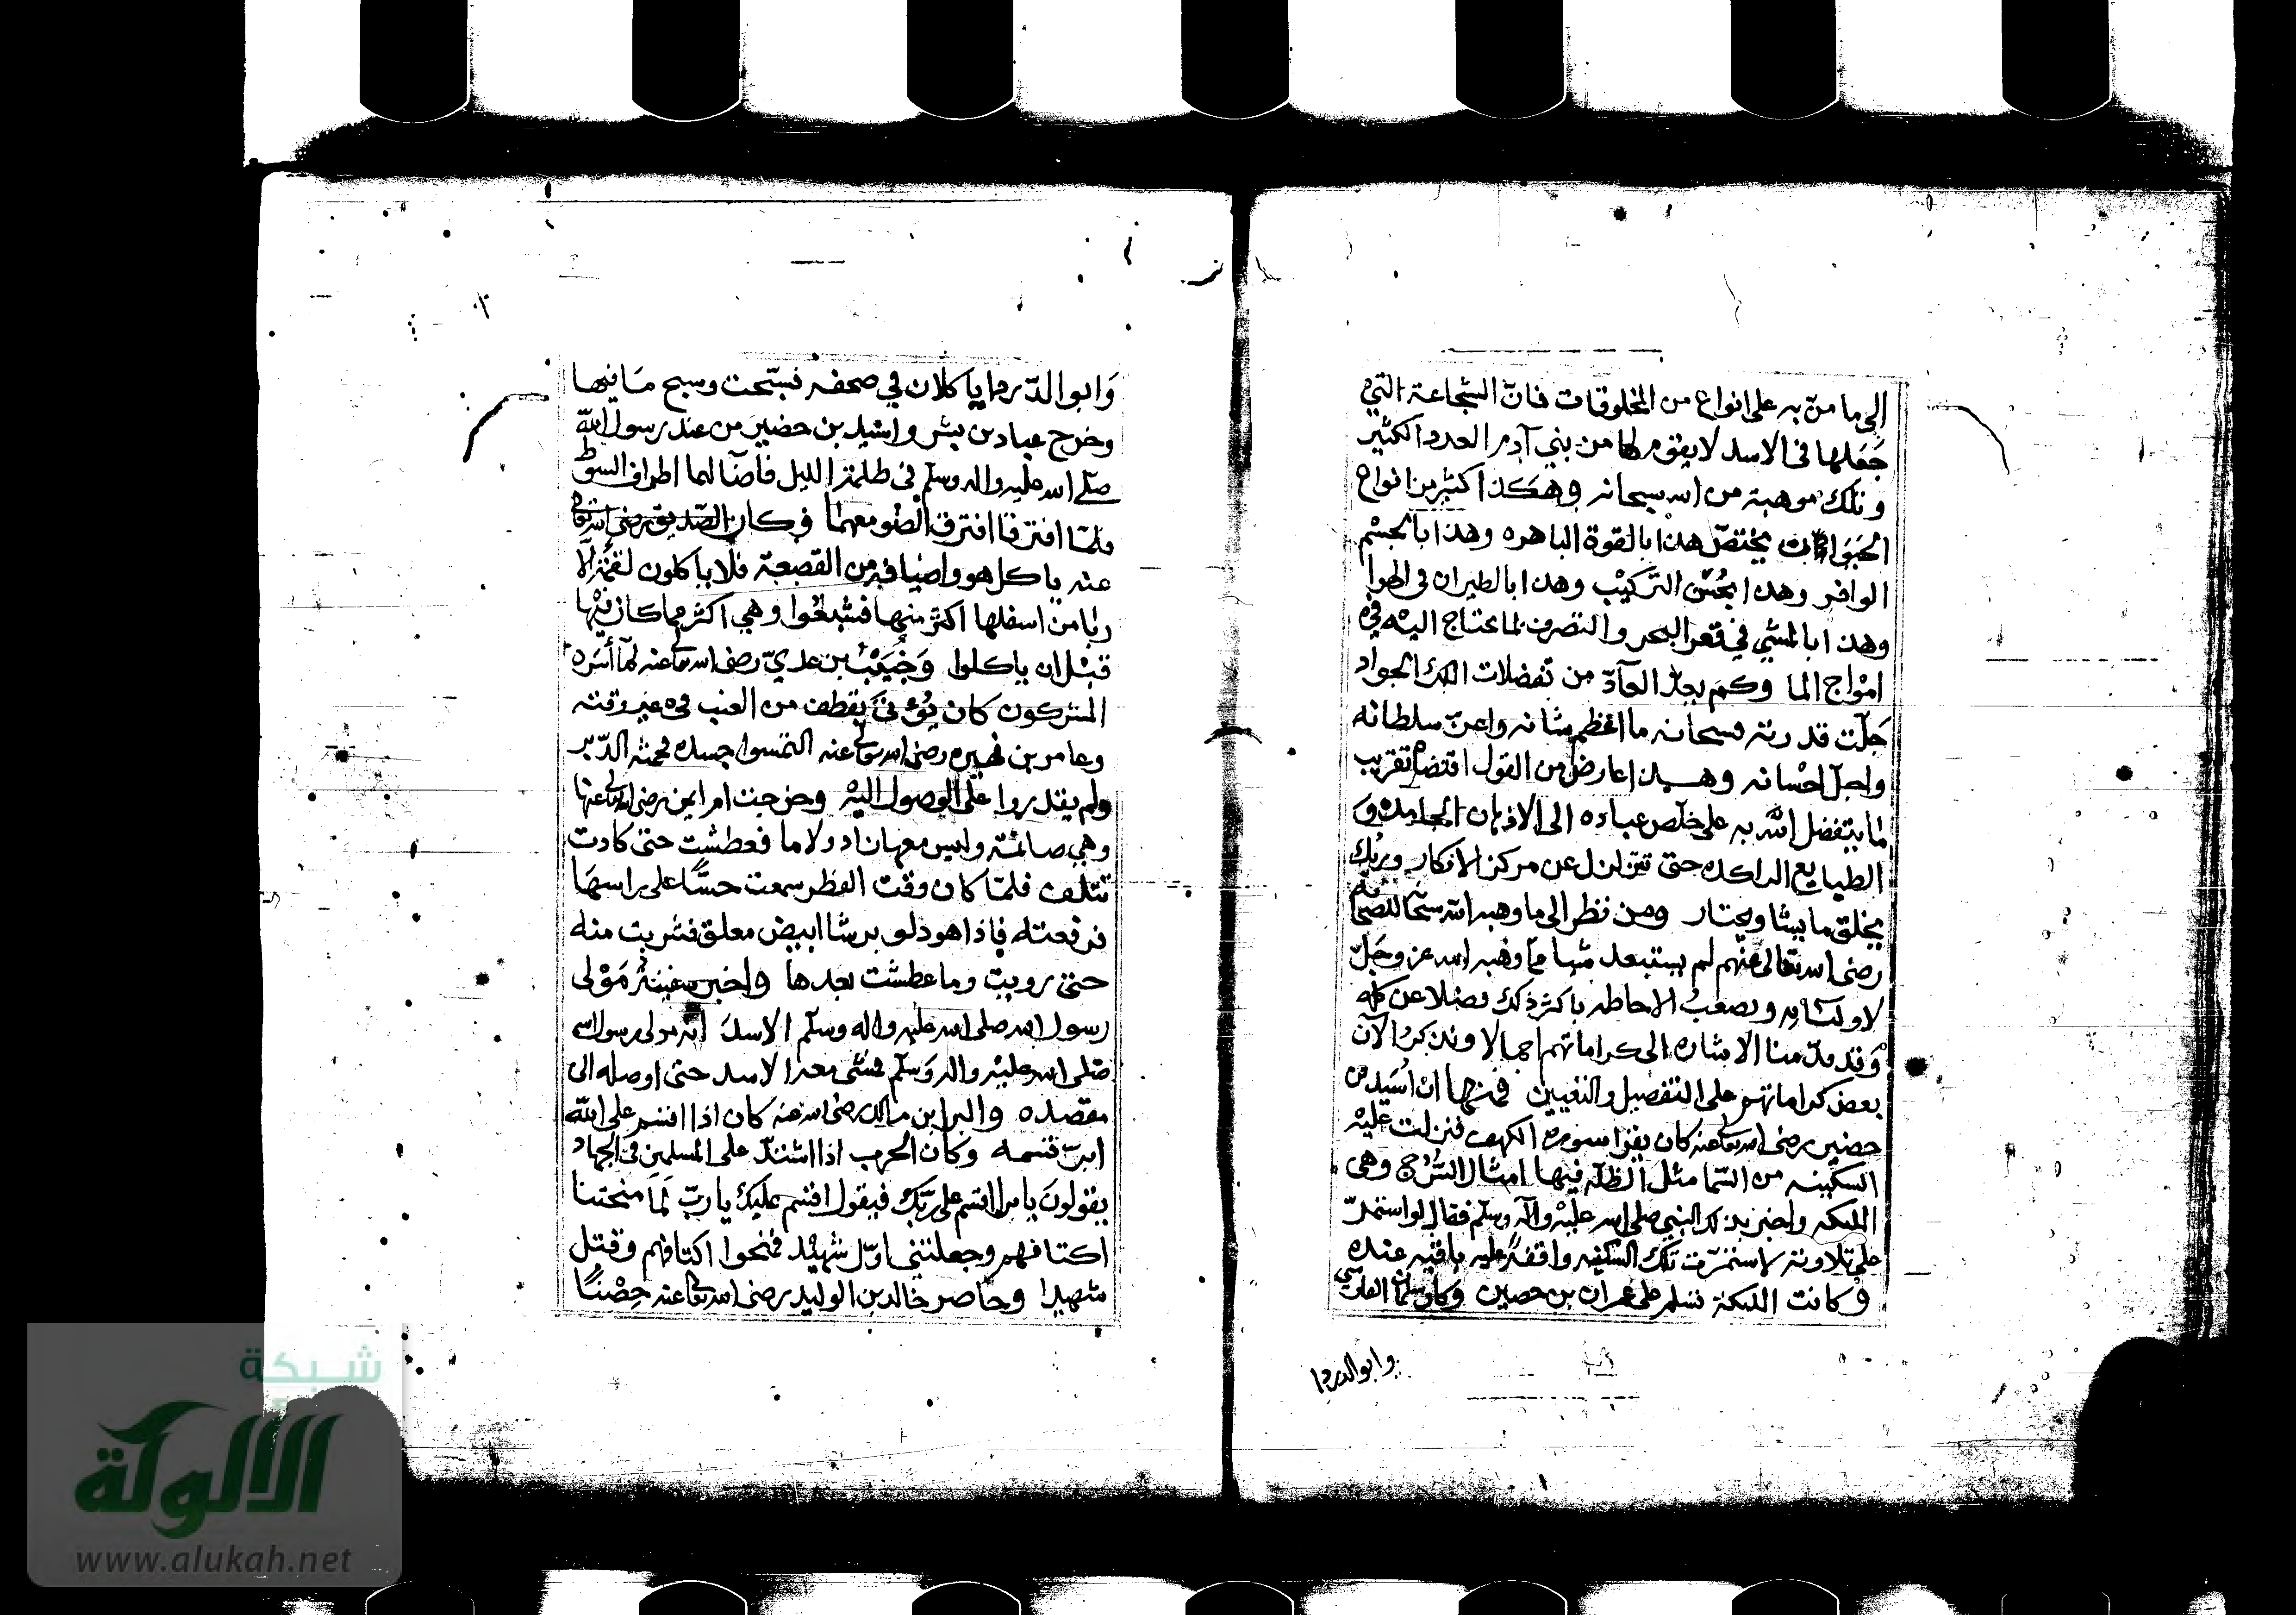 الى ما منّ به على انواع من المخلوقات فانّ الشجاعة التي
جَعَلها فى الاسد لا يقوم لها من بني آدم العدد الكثير
وتلك موهبة من الله سبحانه وهكذا كثير من انواع
الحيوانات يختصّ هذا بالقوة الباهره وهذا بالجسْم
الوافر وهذا بحُسْن التركيْب وهذا بالطيران فى الهوا
وهذا بالمشي في قعر البحر والتصرف لما يحتاج اليْه في
امْواج الما وكم يعدّ العآدّ من تفضلات الملك الجواد
جَلّت قدرته وسبحانه ما اعظم شانه واعزّ سلطانه
واجلّ احْسانه وهــذا عارض من القول اقتضاه تقريب
لما يتفضل الله به على خلّص عباده الى الاذهان الجامده و
الطبايع الراكده حتى تتزلزل عن مركز الانكار وربُّك
يخلق ما يشا ويختار ومن نظر الى ما وهبه الله سبحانه للصحابة
رضى الله تعالى عنْهم لم يستبعد شيا مما وهبه الله عز وجَلّ
لاوليَائه ويصعبُ الاحاطه باكثر ذلك فضلا عن كله
وَقد قدّمنا الاشاره الى كراماتهم اجمالا ونذكر الآن
بعض كراماتهم على التفصيل والتعيين فمنها ان اُسَيد بن
حضير رضى الله تعالى عنه كان يقرا سورة الكهف فنزلت عليْه
السكينه من السّما مثل الظلّه فيها امثال السُّرج وهى
الملئكه واخبر بذلك النبي صلى الله عليْه وآله وسلم فقال لو استمدّ
على تلاوته لاستمرّت تلك السكينه واقفةً عليه باقيه عنده
وكانت الملئكة تسلم على عمران بن حصين وكان سلمان الفارسي
وابو الدردا
وَابو الدّردا ياكلان في صحفه فسبّحت وسبح مَا فيها
وخرج عباد بن بشر واسَيد بن حضير من عند رسول الله
صلّى الله عليه واله وسلم فى ظلمة الليل فاضآ لهما اطراف السوط
فلمّا افترقا افترق الضو معهما وكان الصّديق رضى الله تعالى
عنه ياكل هو واضيافه من القصعة فلا ياكلون لقمْة الّا
ربا من اسفلها اكثر منها فشبعُوا وهي اكثر مما كان فيْها
قبْل ان ياكلوا وَخُبَيْب بن عديّ رضى الله تعالى عنه لمّا أسَره
المشركون كان يُؤتى بقطف من العنب فى غير وقته
وعامر بن فهيره رضى الله تعالى عنه التمسوا جسده فحمته الدّبر
ولم يقدروا على الوصول اليْه وخرجت ام ايمن رضى الله تعالى عنها
وهي صائمة وليس معها زاد ولا ما فعطشت حتى كادت
تتلف فلمّا كان وقت الفطر سمعت حسًّا على راسهَا
فرفعته فاذا هو دلو برشا ابيض معلق فشربت منه
حتى رويت وما عطشت بعدها واخبر سفينةُ مَوْلى
رسول الله صلى الله عليه واله وسلم الاسدَ انه مولى رسول الله
صَلى الله عليْه واله وَسلم فمشى معه الاسد حتى اوصله الى
مقصده والبرا بن مالك رضى الله عنه كان اذا اقسم على الله
ابرّ قسمه وكان الحرب اذا اشتدّ على المسلمين فى الجهاد
يقولونَ يا برا اقسم على ربّك فيقول اقسم عليك يا ربّ لَمَا منحتنا
اكتافهم وجعلتنى اوّل شهيْد فمنحوا اكتافهم وقتل
شهيدا وحَاصر خالد بن الوليد رضى الله تعالى عنه حِصْنًا
شبكة
الألوكة
www.alukah.net